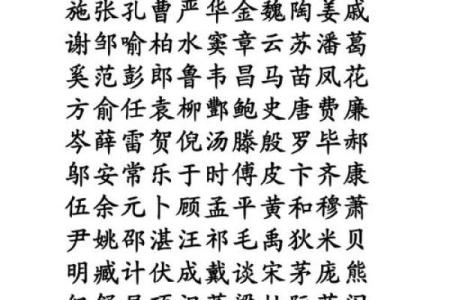 施张孔曹严华金魏陶姜戚
谢邹喻柏水窦章云苏潘葛
奚范彭郎鲁韦昌马苗凤花
方俞任袁柳酆鲍史唐费廉
岑薛雷贺倪汤滕殷罗毕郝
邬安常乐于时傅皮卞齐康
伍余元卜顾孟平黄和穆萧
尹姚邵湛汪祁毛禹狄米贝
明臧计伏成戴谈宋茅庞熊